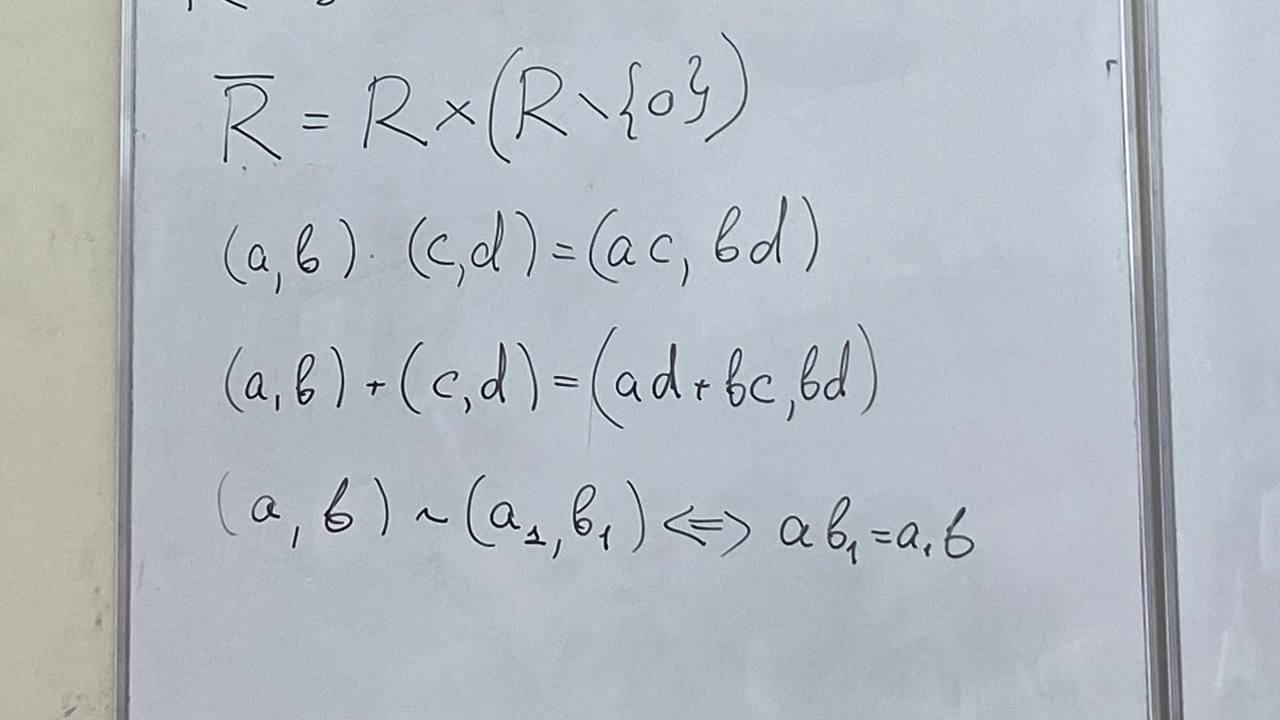 R̅ = R × (R \ {0})
(a, b) · (c, d) = (ac, bd)
(a, b) + (c, d) = (ad + bc, bd)
(a, b) ~ (a₁, b₁) ⟺ ab₁ = a₁b